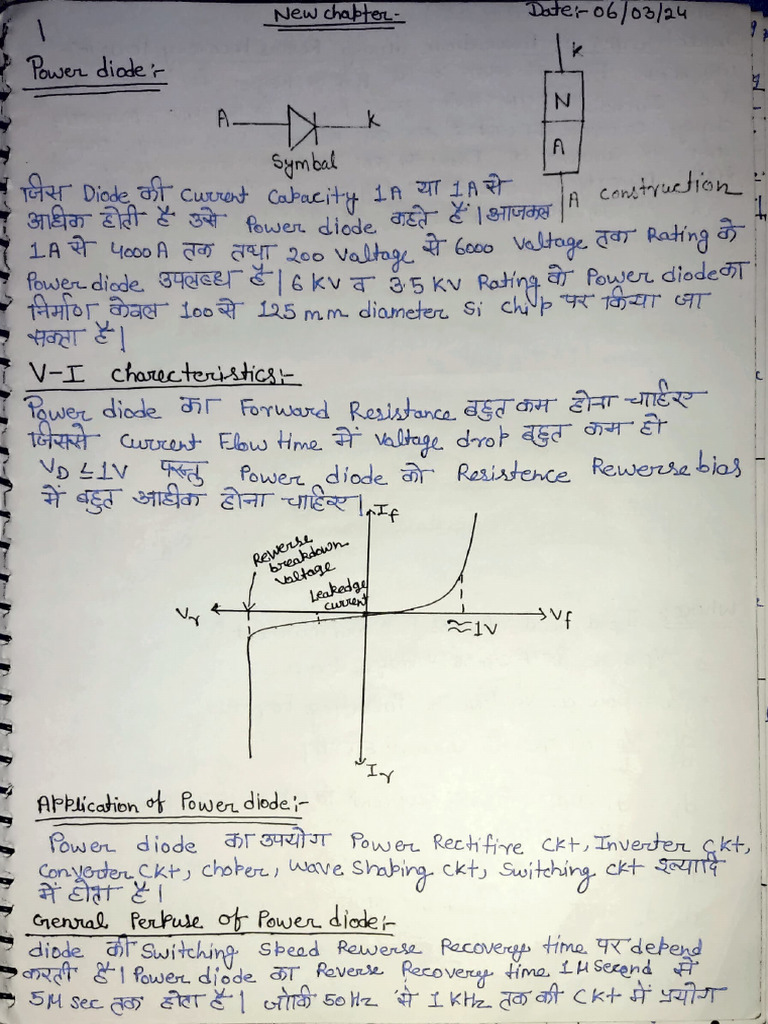 New chapter:-
Date:- 06/03/24
1
Power diode:-
A
K
Symbal
K
N
A
A
construction
जिस Diode की current capacity 1A या 1A से
अधिक होती है उसे Power diode कहते है। आजकल
1A से 4000A तक तथा 200 voltage से 6000 voltage तक Rating के
Power diode उपलब्ध है। 6 KV व 3.5 KV Rating के Power diode का
निर्माण केवल 100 से 125 mm diameter Si chip पर किया जा
सकता है।
V-I charecteristics:-
Power diode का Forward Resistance बहुत कम होना चाहिए
जिससे current Flow time में voltage drop बहुत कम हो
VD ≤ 1V परन्तु Power diode को Resistence Rewerse bias
में बहुत अधिक होना चाहिए।
If
Rewerse
breakdown
voltage
Leakedge
current
Vr
Vf
≈1V
Ir
Application of Power diode:-
Power diode का उपयोग Power Rectifire ckt, Inverter ckt,
Converter ckt, choper, wave shaping ckt, Switching ckt इत्यादि
में होता है।
Genral Perpuse of Power diode:-
diode की switching speed Rewerse Recovery time पर depend
करती है। Power diode का Reverse Recovery time 1μ Second में
5μ sec तक होता है। जोकि 50Hz से 1 KHz तक की ckt में प्रयोग